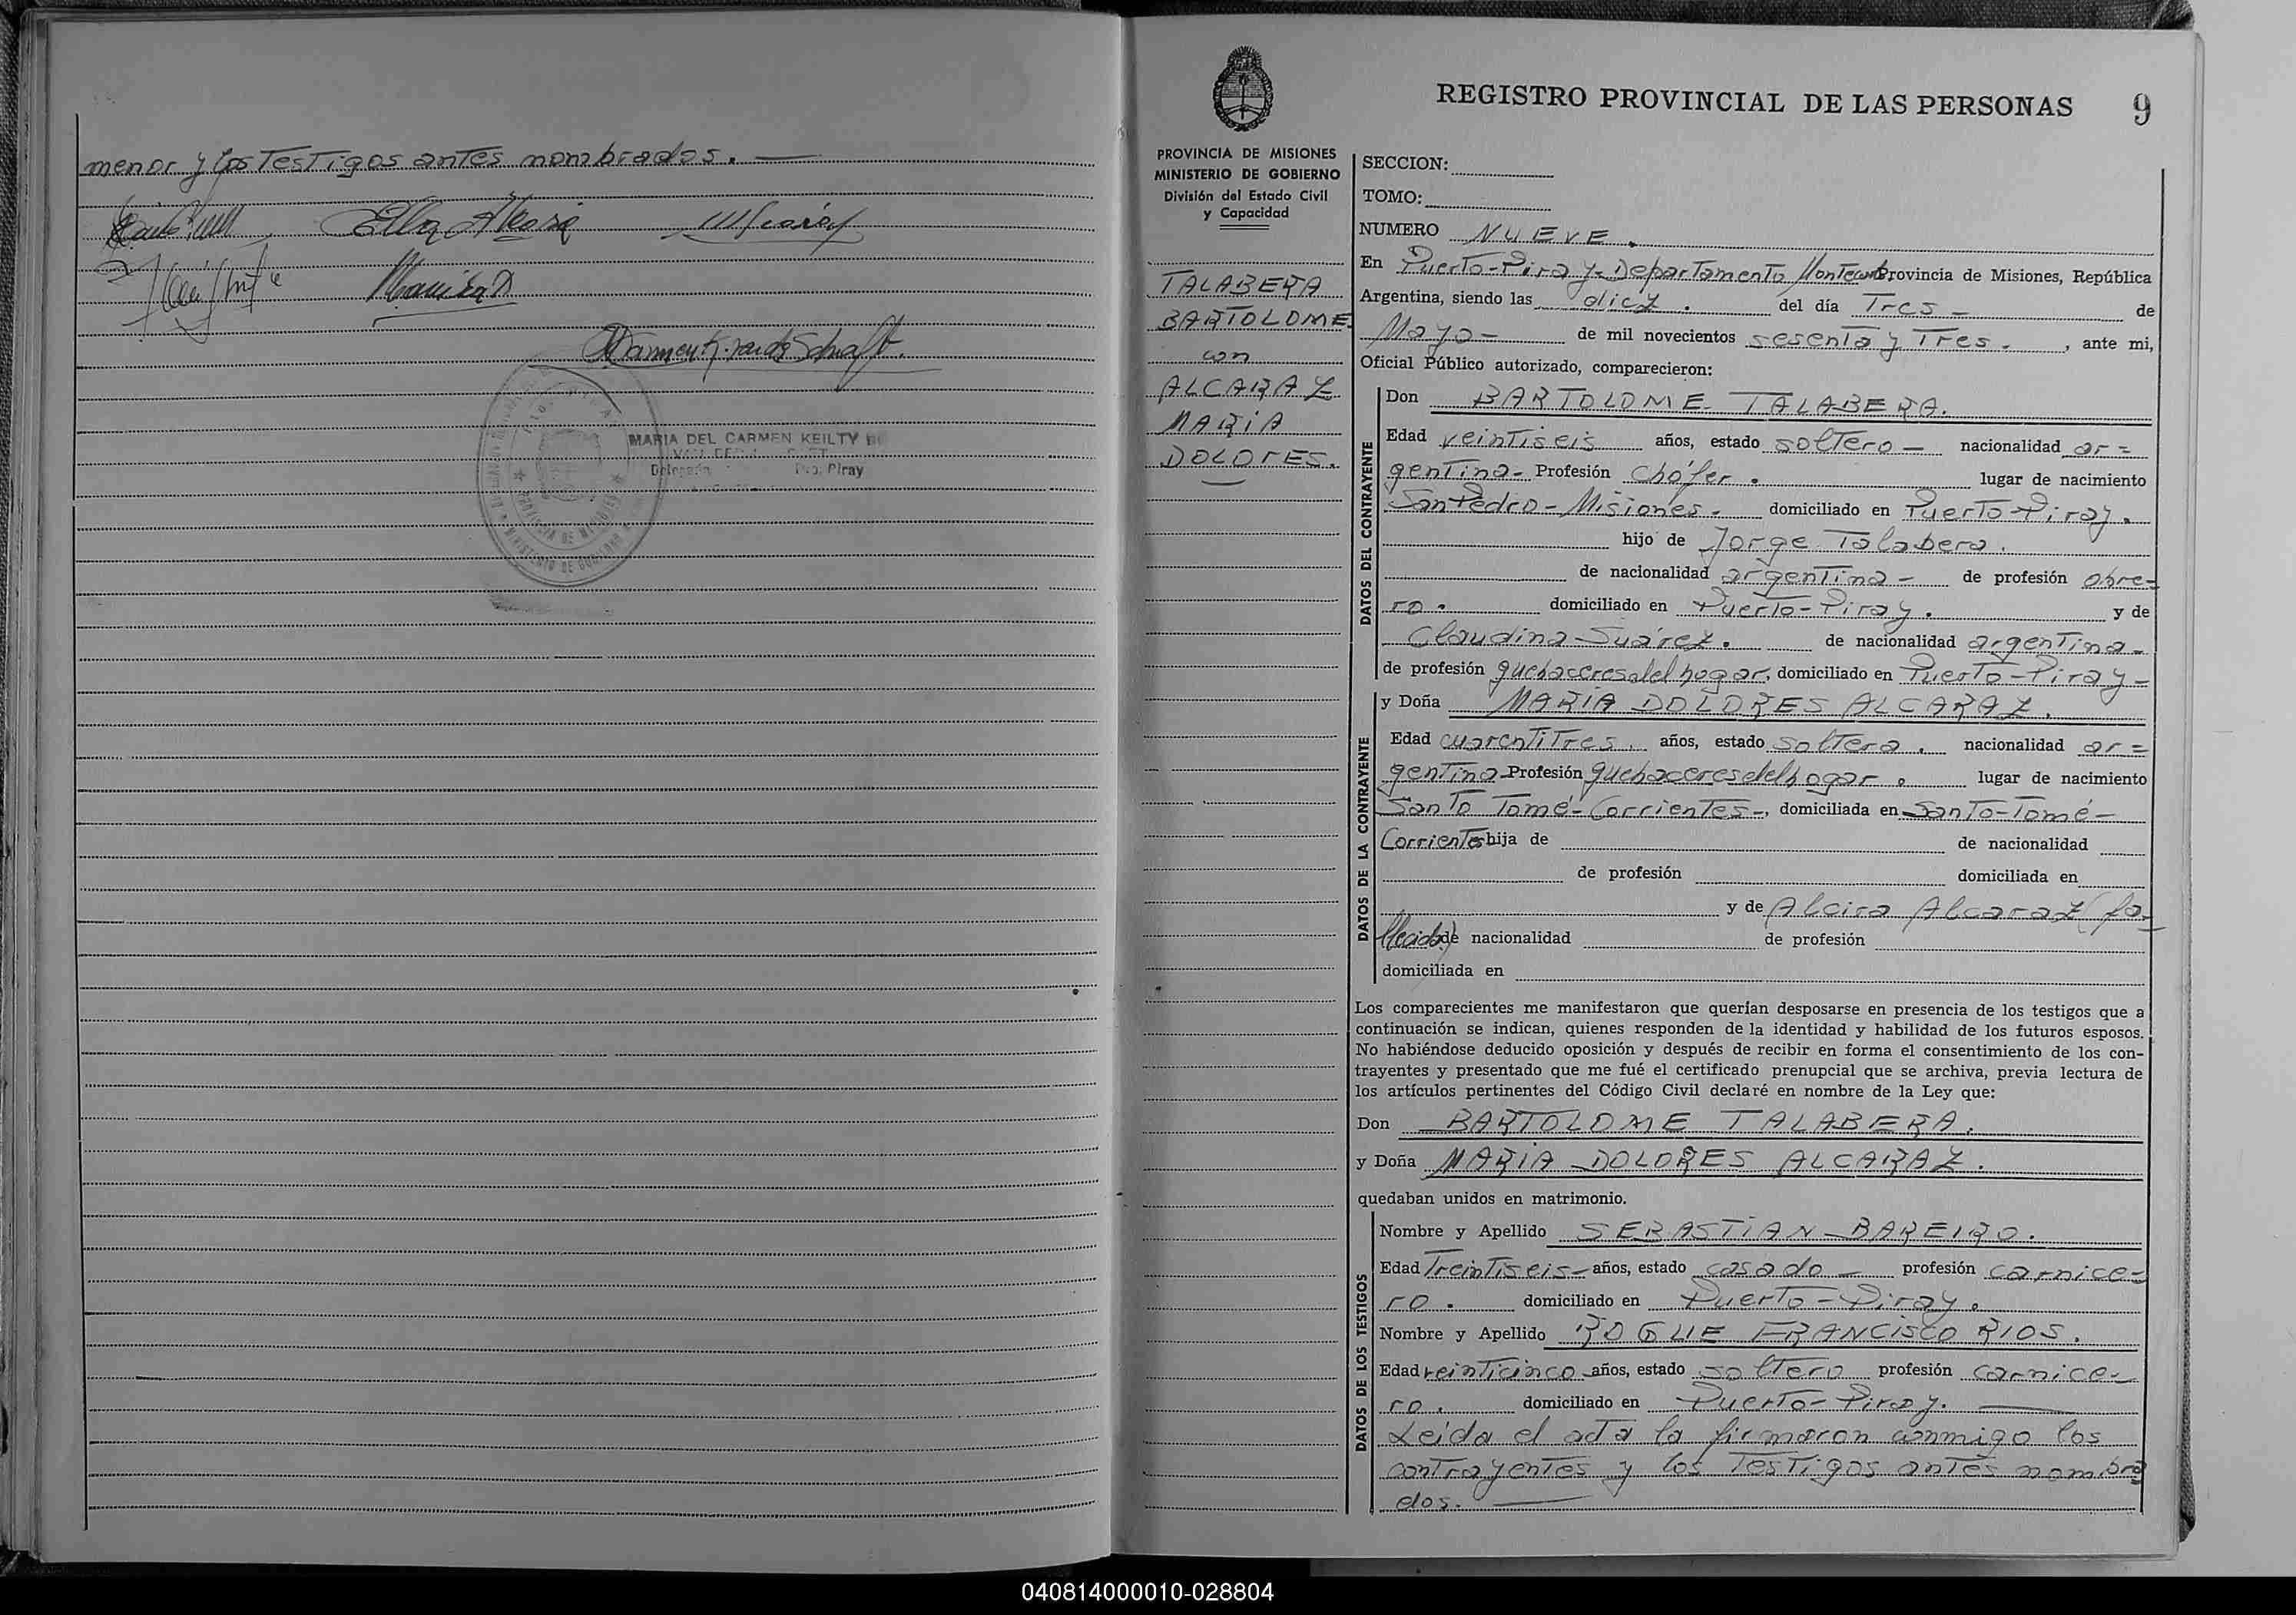 menor y los Testigos antes nombrados. —
Ella Alegre
MARIA DEL CARMEN KEILTY DE
Pto. Piray
PROVINCIA DE MISIONES
MINISTERIO DE GOBIERNO
REGISTRO PROVINCIAL DE LAS PERSONAS 9
PROVINCIA DE MISIONES
MINISTERIO DE GOBIERNO
División del Estado Civil
y Capacidad
TALABERA
BARTOLOME
con
ALCARAZ
MARIA
DOLORES.
SECCION:
TOMO:
NUMERO NUEVE.
En Puerto-Piray-Departamento Montecarlo Provincia de Misiones, República
Argentina, siendo las diez. del día Tres - de
Mayo- de mil novecientos sesenta y Tres. , ante mi,
Oficial Público autorizado, comparecieron:
DATOS DEL CONTRAYENTE
Don BARTOLOME TALABERA.
Edad veintiseis años, estado soltero - nacionalidad ar=
gentina- Profesión Chófer. lugar de nacimiento
San Pedro-Misiones- domiciliado en Puerto-Piray.
hijo de Jorge Talabera.
de nacionalidad argentina- de profesión obre-
ro. domiciliado en Puerto-Piray. y de
Claudina Suárez. de nacionalidad argentina-
de profesión quehaceres del hogar, domiciliado en Puerto-Piray-
DATOS DE LA CONTRAYENTE
y Doña MARIA DOLORES ALCARAZ.
Edad cuarentitres. años, estado soltera. nacionalidad ar=
gentina-Profesión quehaceres del hogar. lugar de nacimiento
Santo Tomé-Corrientes-, domiciliada en Santo-Tomé-
Corrientes hija de de nacionalidad
de profesión domiciliada en
y de Alcira Alcaraz (fa-
llecida) de nacionalidad de profesión
domiciliada en
Los comparecientes me manifestaron que querían desposarse en presencia de los testigos que a
continuación se indican, quienes responden de la identidad y habilidad de los futuros esposos.
No habiéndose deducido oposición y después de recibir en forma el consentimiento de los con-
trayentes y presentado que me fué el certificado prenupcial que se archiva, previa lectura de
los artículos pertinentes del Código Civil declaré en nombre de la Ley que:
Don BARTOLOME TALABERA.
y Doña MARIA DOLORES ALCARAZ.
quedaban unidos en matrimonio.
DATOS DE LOS TESTIGOS
Nombre y Apellido SEBASTIAN BAREIRO.
Edad Treintiseis- años, estado casado - profesión carnice-
ro. domiciliado en Puerto-Piray.
Nombre y Apellido ROQUE FRANCISCO RIOS.
Edad veinticinco años, estado soltero profesión carnice-
ro. domiciliado en Puerto-Piray.
Leida el acta la firmaron conmigo los
contrayentes y los Testigos antes nombra
dos.
040814000010-028804